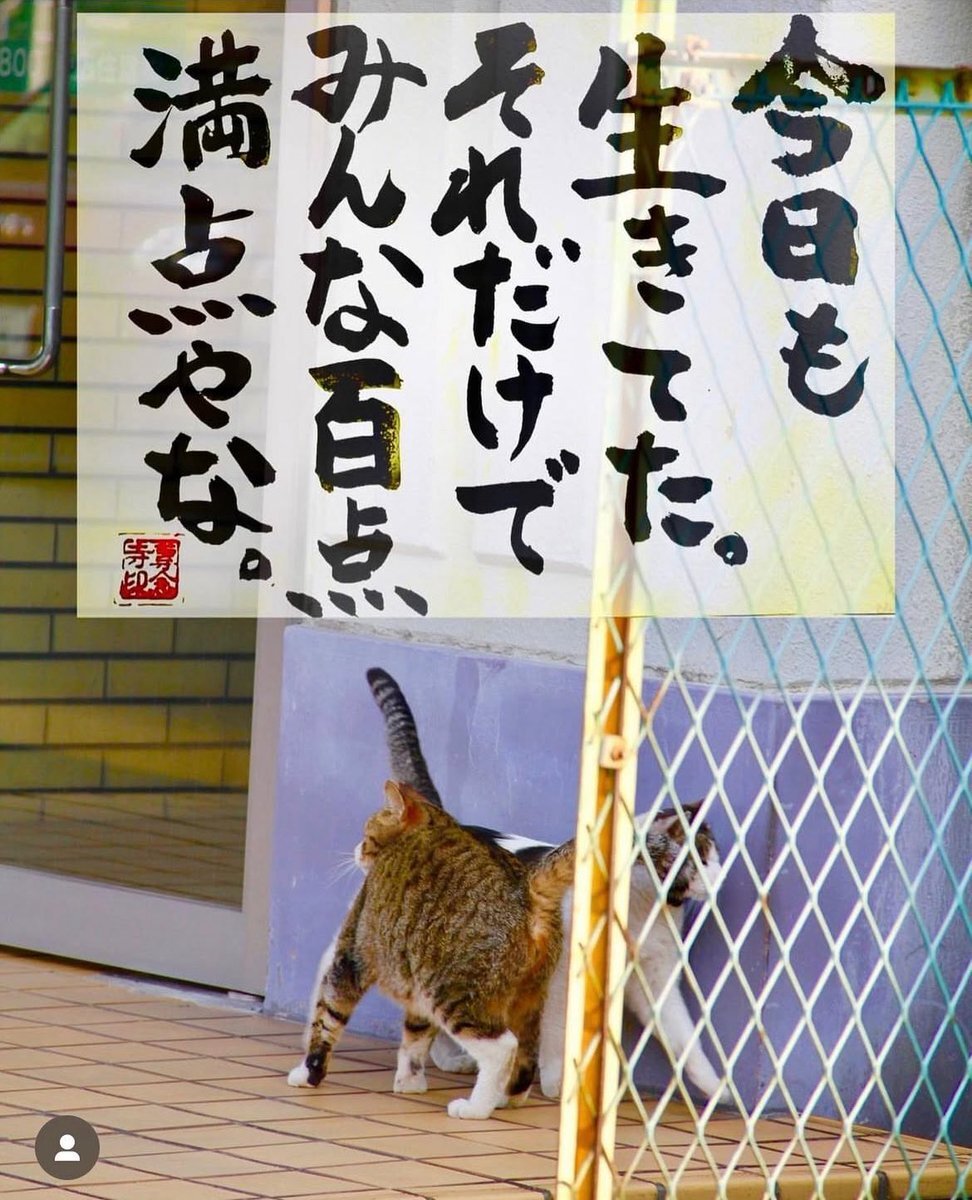 今日も
生きてた。
それだけで
みんな百点
満点やな。